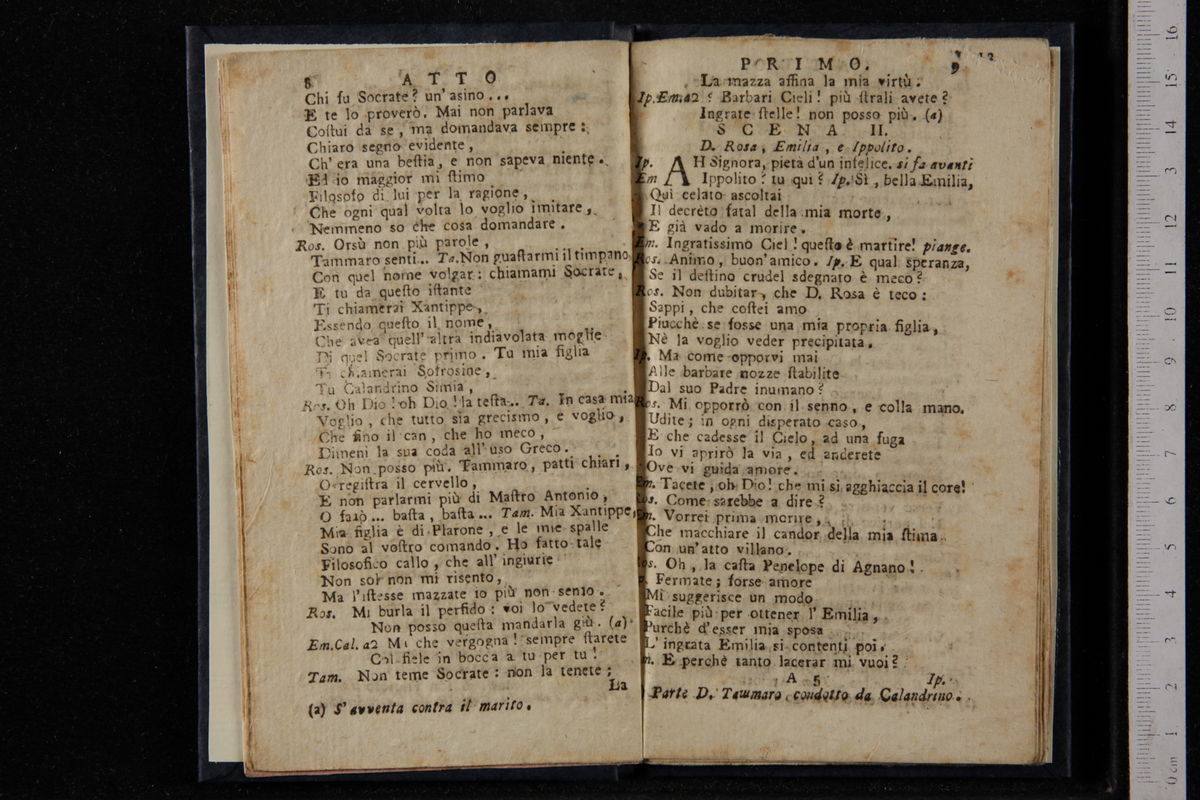 8 ATTO
Chi fu Socrate? un' asino...
E te lo proverò. Mai non parlava
Coſtui da se, ma domandava sempre:
Chiaro segno evidente,
Ch' era una beſtia, e non sapeva niente.
Ed io maggior mi ſtimo
Filosofo di lui per la ragione,
Che ogni qual volta lo voglio imitare,
Nemmeno so che cosa domandare.
Ros. Orsù non più parole,
Tammaro senti... Ta. Non guaſtarmi il timpano
Con quel nome volgar: chiamami Socrate,
E tu da queſto iſtante
Ti chiamerai Xantippe,
Essendo queſto il nome,
Che avea quell' altra indiavolata moglie
Di quel Socrate primo. Tu mia figlia
Ti chiamerai Sofrosine,
Tu Calandrino Simia,
Ros. Oh Dio! oh Dio! la teſta... Ta. In casa mia
Voglio, che tutto sia grecismo, e voglio,
Che fino il can, che ho meco,
Dimeni la sua coda all' uso Greco.
Ros. Non posso più. Tammaro, patti chiari,
O regiſtra il cervello,
E non parlarmi più di Maſtro Antonio,
O farò... baſta, baſta... Tam. Mia Xantippe,
Mia figlia è di Platone, e le mie spalle
Sono al voſtro comando. Ho fatto tale
Filosofico callo, che all' ingiurie
Non sol non mi risento,
Ma l'iſtesse mazzate io più non sento.
Ros. Mi burla il perfido: voi lo vedete?
Non posso queſta mandarla giù. (a)
Em. Cal. a2 Mi che vergogna! sempre ſtarete
Col fiele in bocca a tu per tu!
Tam. Non teme Socrate: non la tenete;
La
(a) S' avventa contra il marito.
PRIMO. 9
La mazza affina la mia virtù.
Ip. Em. a2 Barbari Cieli! più ſtrali avete?
Ingrate ſtelle! non posso più. (a)
SCENA II.
D. Rosa, Emilia, e Ippolito.
Ip. AH Signora, pietà d'un infelice. si fa avanti
Em Ippolito? tu qui? Ip. Sì, bella Emilia,
Quì celato ascoltai
Il decrèto fatal della mia morte,
E già vado a morire.
Em. Ingratissimo Ciel! queſto è martire! piange.
Ros. Animo, buon'amico. Ip. E qual speranza,
Se il deſtino crudel sdegnato è meco?
Ros. Non dubitar, che D. Rosa è teco:
Sappi, che coſtei amo
Piucchè se fosse una mia propria figlia,
Nè la voglio veder precipitata.
Ip. Ma come opporvi mai
Alle barbare nozze ſtabilite
Dal suo Padre inumano?
Ros. Mi opporrò con il senno, e colla mano.
Udite; in ogni disperato caso,
E che cadesse il Cielo, ad una fuga
Io vi aprirò la via, ed anderete
Ove vi guida amore.
Em. Tacete, oh Dio! che mi si agghiaccia il core!
Ros. Come sarebbe a dire?
Em. Vorrei prima morire,
Che macchiare il candor della mia ſtima
Con un'atto villano.
Ros. Oh, la caſta Penelope di Agnano!
Fermate; forse amore
Mi suggerisce un modo
Facile più per ottener l' Emilia,
Purchè d'esser mia sposa
L' ingrata Emilia si contenti poi.
Em. E perchè tanto lacerar mi vuoi?
A 5 Ip.
Parte D. Tammaro condotto da Calandrino.